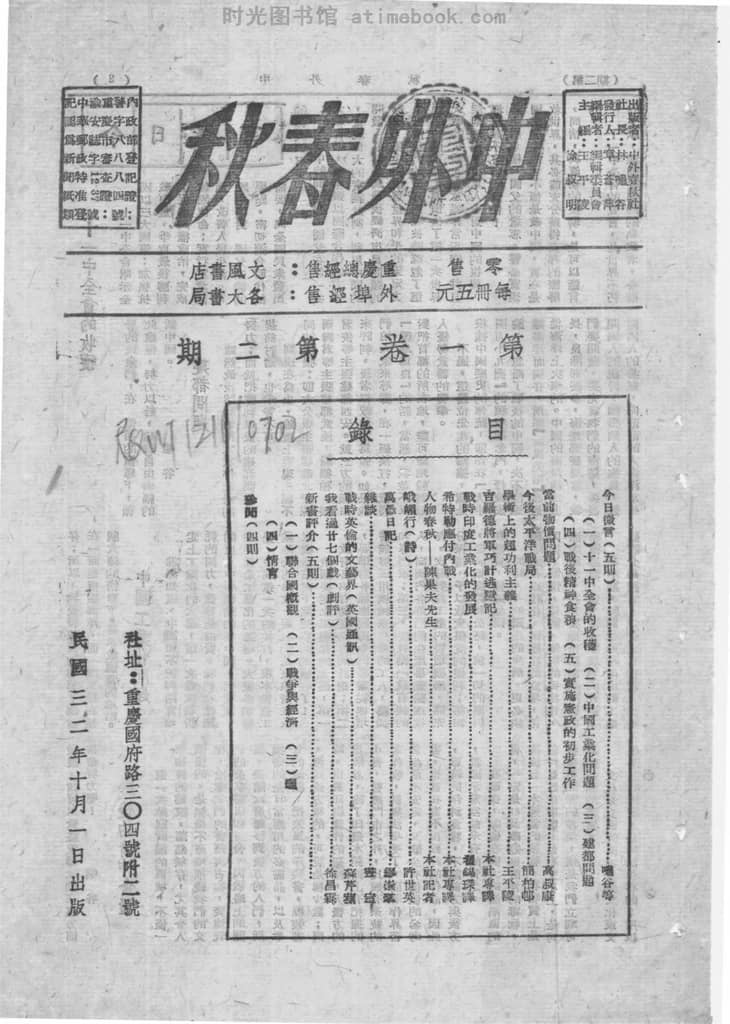 时光图书馆 atimebook.com
中外春秋
出版者：中外春秋社
社長：林
發行人：
編輯者：編輯委員會
主編：王平陵
內政部登記證：
警字八八八四號
重慶市審查證：
渝安誌字1237號
中華郵政特准登
記認為新聞紙類
零售每冊五元
重慶總經售：文風書店
外埠經售：各大書局
第一卷第二期
目錄
今日徵言（五則）
（一）十一中全會的收穫　（二）中國工業化問題　（三）建都問題
（四）戰後精神食糧　（五）實施憲政的初步工作
當前物價問題 高叔康
今後太平洋戰局 簡柏邨
學術上的超功利主義 王平陵
吉羅德將軍巧計逃獄記 本社專譯
戰時印度工業化的發展 譯
希特勒應付內戰 本社專譯
人物春秋——陳果夫先生 本社記者
峨嵋行（詩） 許世英
萬縣日記
雜談
戰時英倫的文藝界（英國通訊） 蘇芹蓀
我看過廿七個戲（劇評） 徐昌霖
新書評介（五則）
（一）聯合國概觀　（二）戰爭與經濟　（三）
（四）情盲
珍聞（四則）
社址：重慶國府路三〇四號附二號
民國三二年十月一日出版